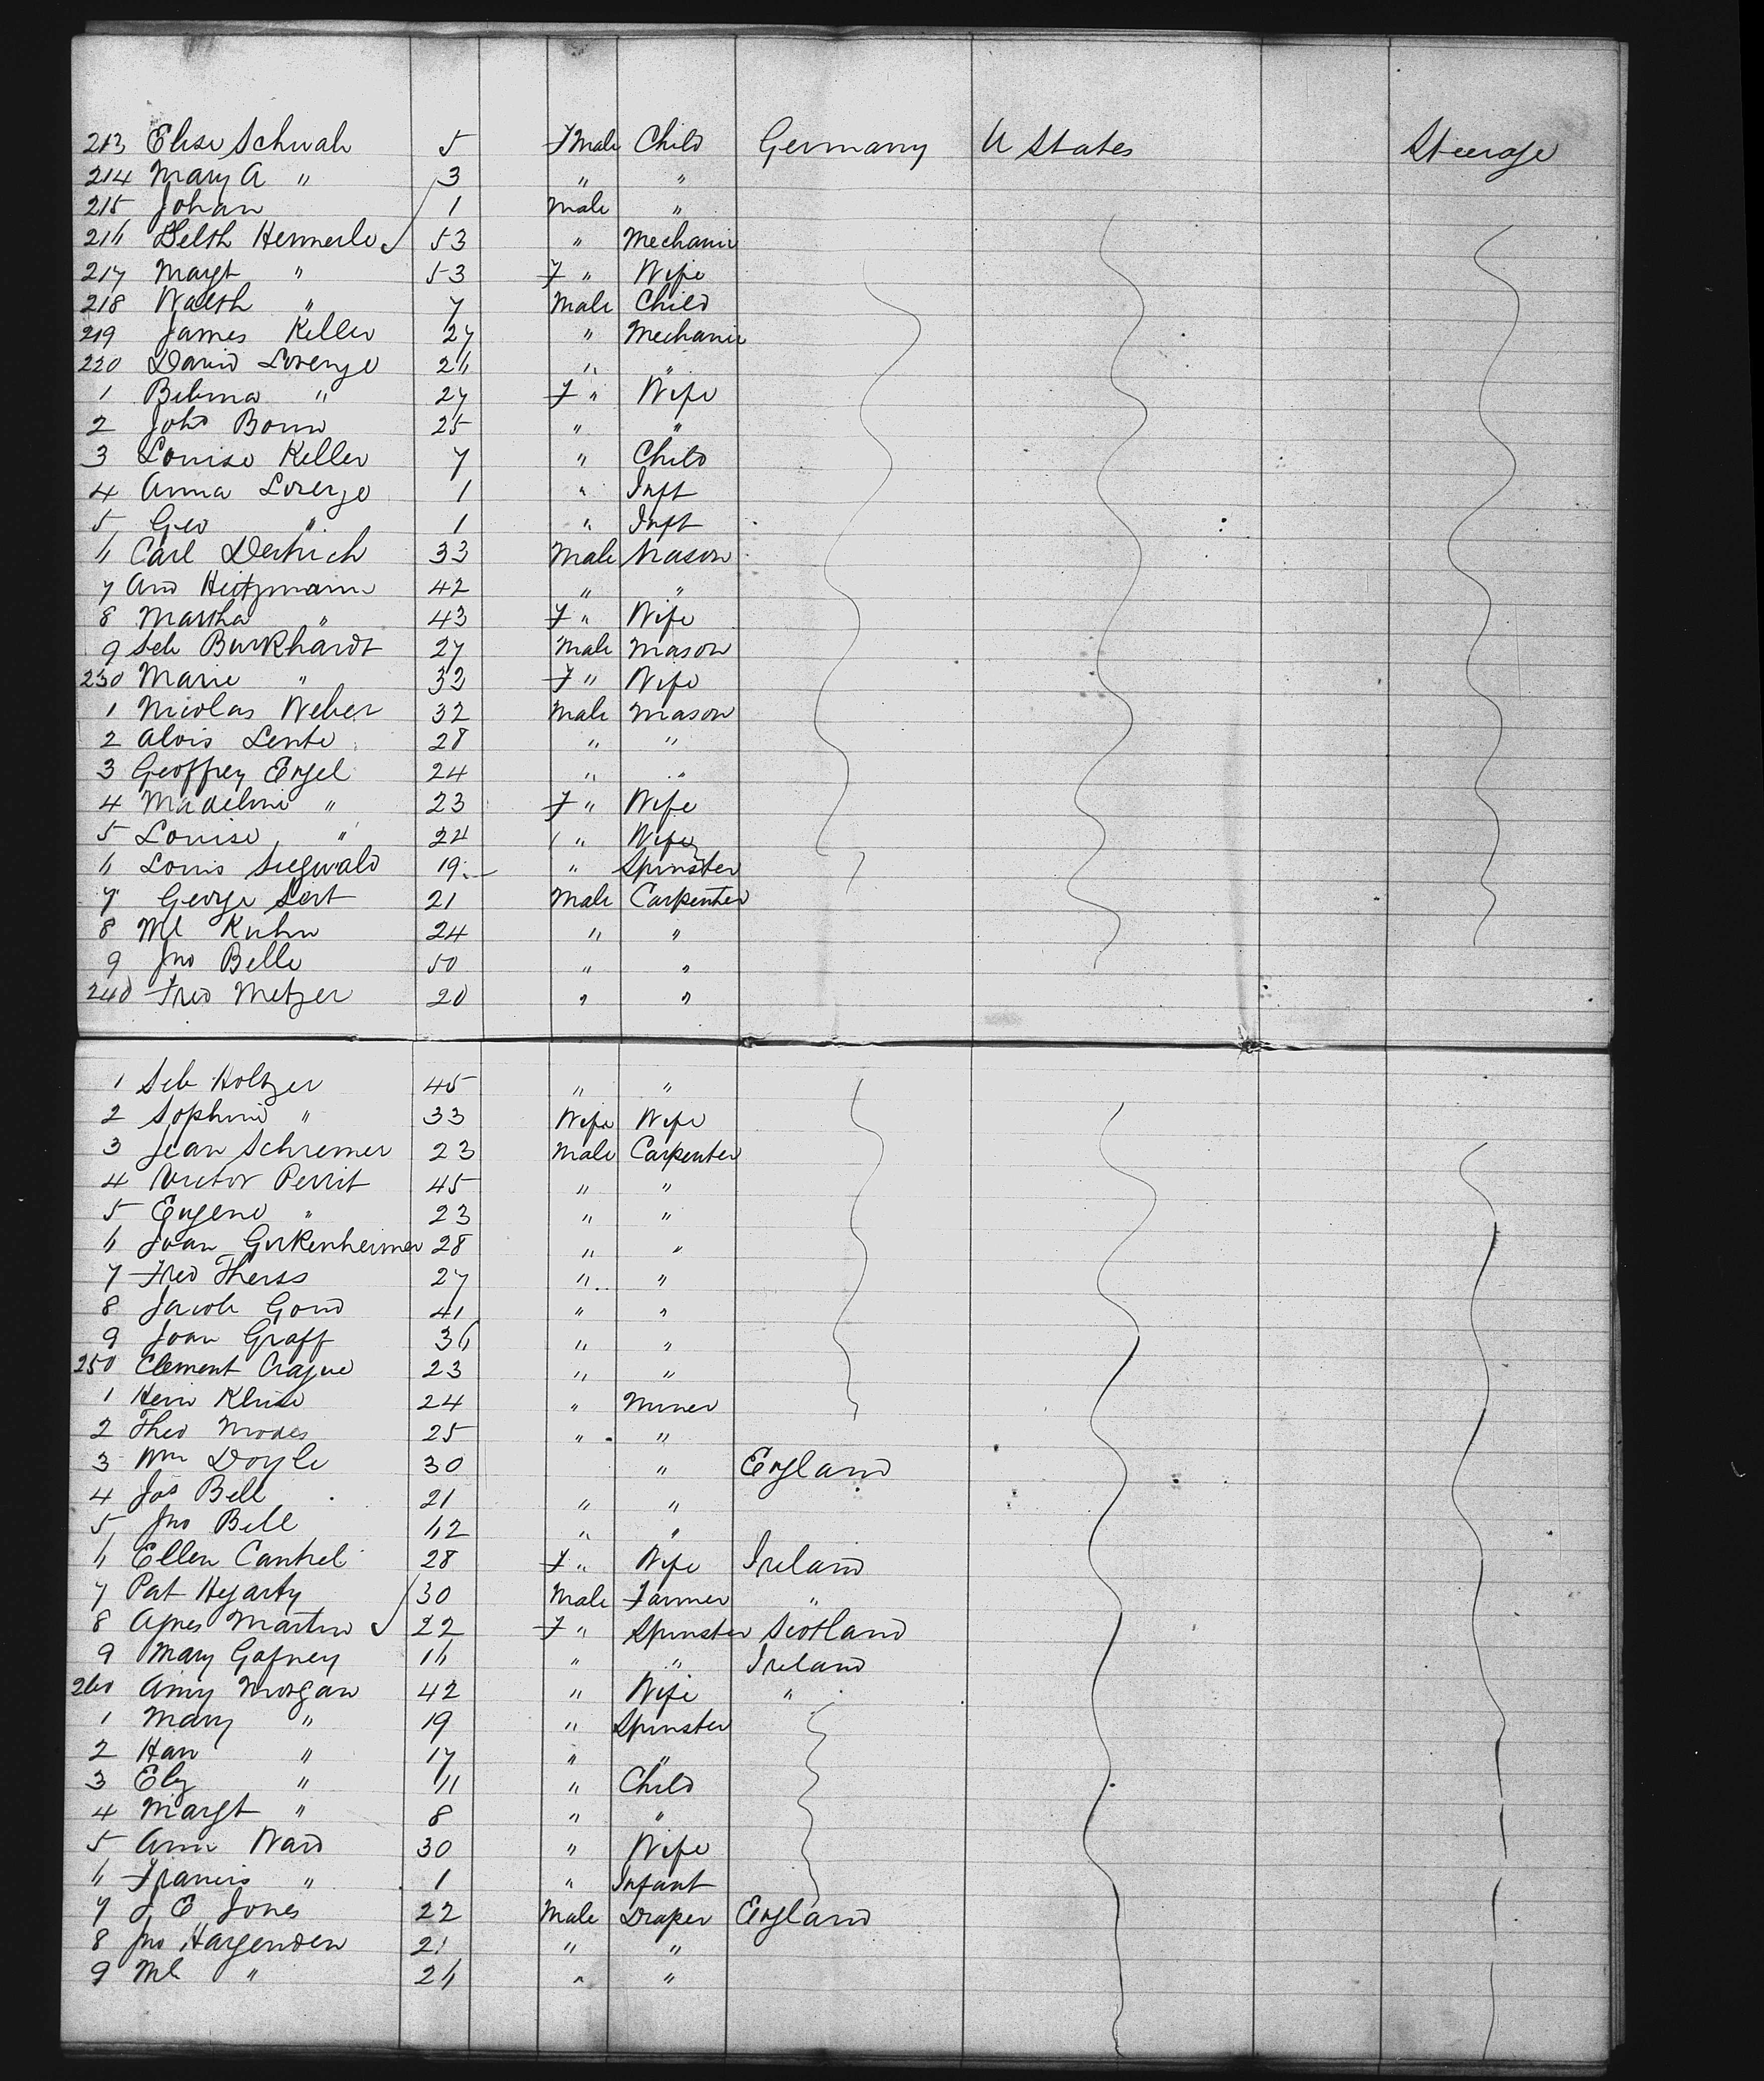 213 Elise Schwab 5 Fmale Child Germany U States Steerage
214 Mary A " 3 " "
215 Johan 1 Male "
216 Hennerle 53 " Mechanic
217 Margt " 53 F " Wife
218 Walth " 7 Male Child
219 James Keller 27 " Mechanic
220 David Lorenze 26 " "
1 " 27 F " Wife
2 Johs Bonn 25 " "
3 Louise Keller 7 " Child
4 Anna Lorenze 1 " Inft
5 Geo " 1 " Inft
6 Carl Dietrich 33 Male Mason
7 And Heitzmann 42 " "
8 Martha " 43 F " Wife
9 Seb Burkhardt 27 Male Mason
230 Marie " 33 F " Wife
1 Nicolas Weber 32 Male Mason
2 Alois Lente 28 " "
3 Geoffrey Engel 24 " "
4 Madeline " 23 F " Wife
5 Louise " 24 " Wife
6 Louis Siegwald 19 " Spinster
7 George Sert 21 Male Carpenter
8 Ml Kuhn 24 " "
9 Jno Belle 50 " "
240 Fred Metzer 20 " "
1 Seb Holtzer 45 " "
2 Sophine " 33 Wife Wife
3 Jean Schremer 23 Male Carpenter
4 Victor Perrit 45 " "
5 Eugene " 23 " "
6 Joan Gerkenheimer 28 " "
7 Fred Therss 27 " "
8 Jacob Gond 41 " "
9 Joan Graff 36 " "
250 Clement Crague 23 " "
1 Henri 24 " Miner
2 Theo Modes 25 " "
3 Wm Doyle 30 " England
4 Jos Bell 21 " "
5 Jno Bell 62 " "
6 Ellen Cantrel 28 F " Wife Ireland
7 Pat Hegarty 30 Male Farmer "
8 Agnes Martin 22 F " Spinster Scotland
9 Mary Gafney 16 " " Ireland
260 Amy Morgan 42 " Wife "
1 Mary " 19 " Spinster
2 Han " 17 " "
3 Elz " 11 " Child
4 Margt " 8 " "
5 Ann Ward 30 " Wife
6 Francis " 1 " Infant
7 J E Jones 22 Male Draper England
8 Jno Hargenden 21 " "
9 Ml " 26 " "